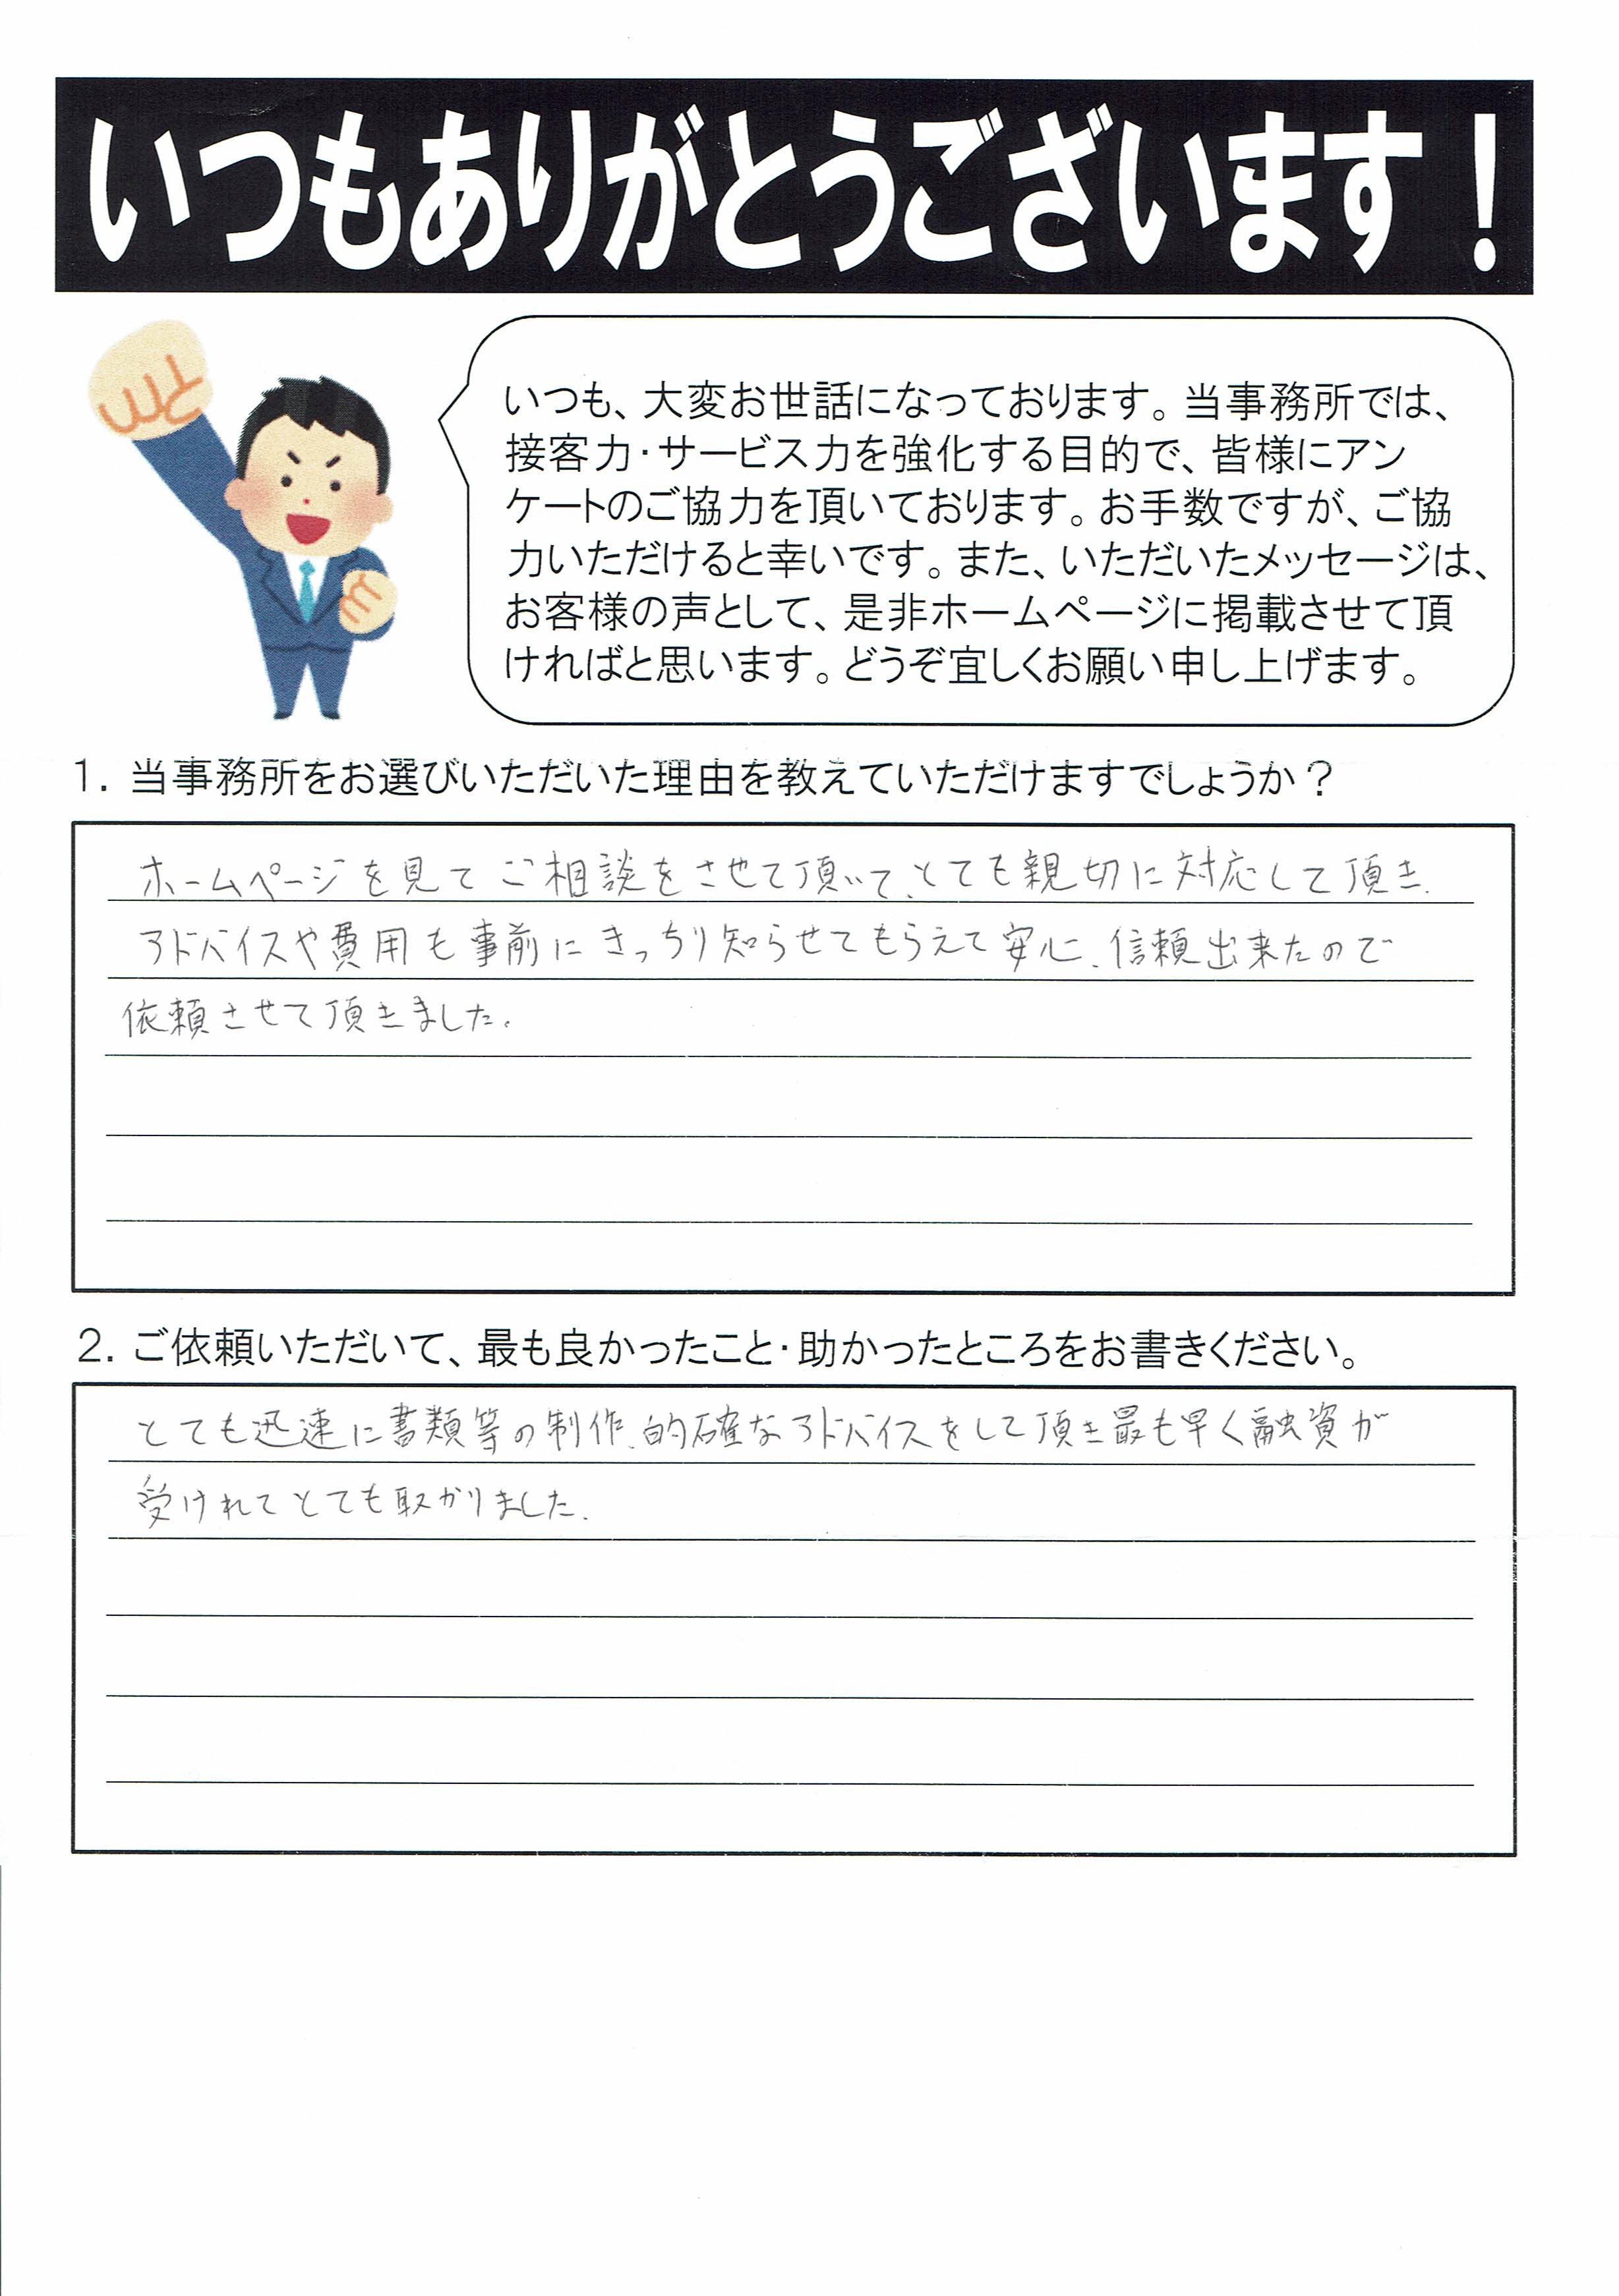 いつもありがとうございます！
いつも、大変お世話になっております。当事務所では、
接客力・サービス力を強化する目的で、皆様にアン
ケートのご協力を頂いております。お手数ですが、ご協
力いただけると幸いです。また、いただいたメッセージは、
お客様の声として、是非ホームページに掲載させて頂
ければと思います。どうぞ宜しくお願い申し上げます。
1. 当事務所をお選びいただいた理由を教えていただけますでしょうか？
ホームページを見てご相談をさせて頂いて、とても親切に対応して頂き、
アドバイスや費用も事前にきっちり知らせてもらえて安心、信頼出来たので
依頼させて頂きました。
2. ご依頼いただいて、最も良かったこと・助かったところをお書きください。
とても迅速に書類等の制作、的確なアドバイスをして頂き最も早く融資が
受けれてとても取かりました。